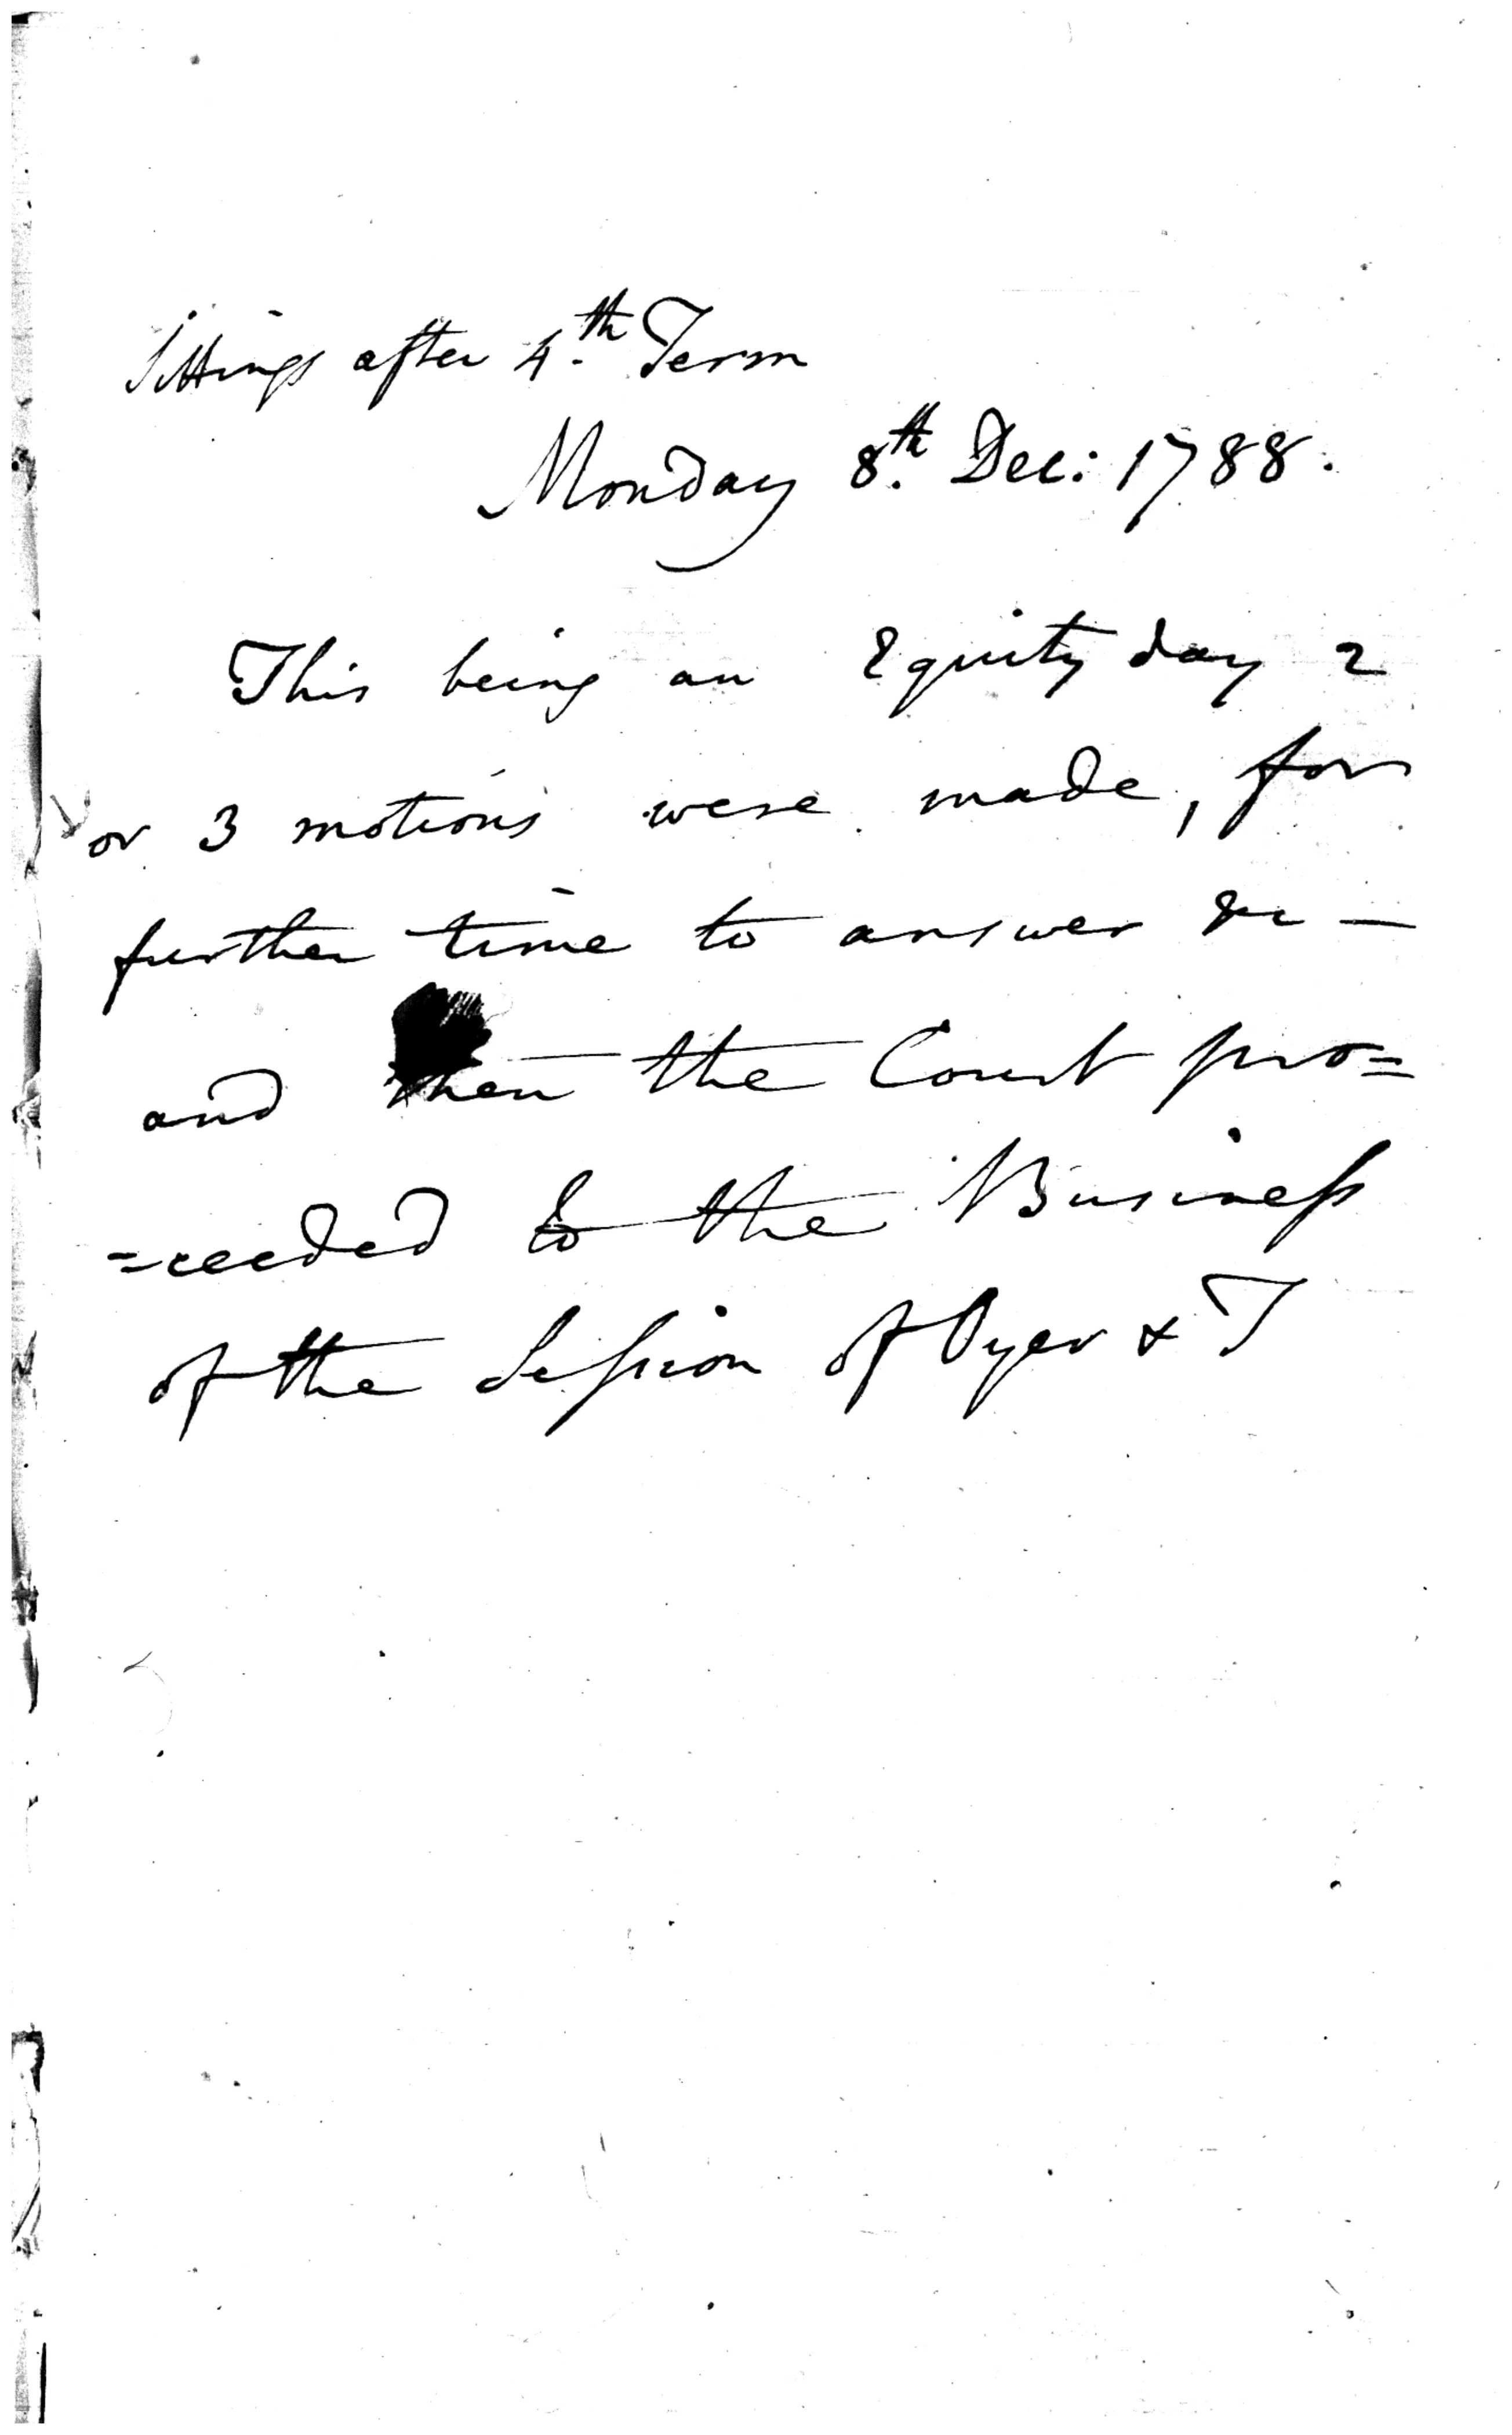 Sittings after 4.th Term
Monday 8.th Dec: 1788.
This being an Equity day 2
or 3 motions were made, for
further time to answer &c —
and then the Court pro=
=ceeded to the Business
of the Session of Oyer & T